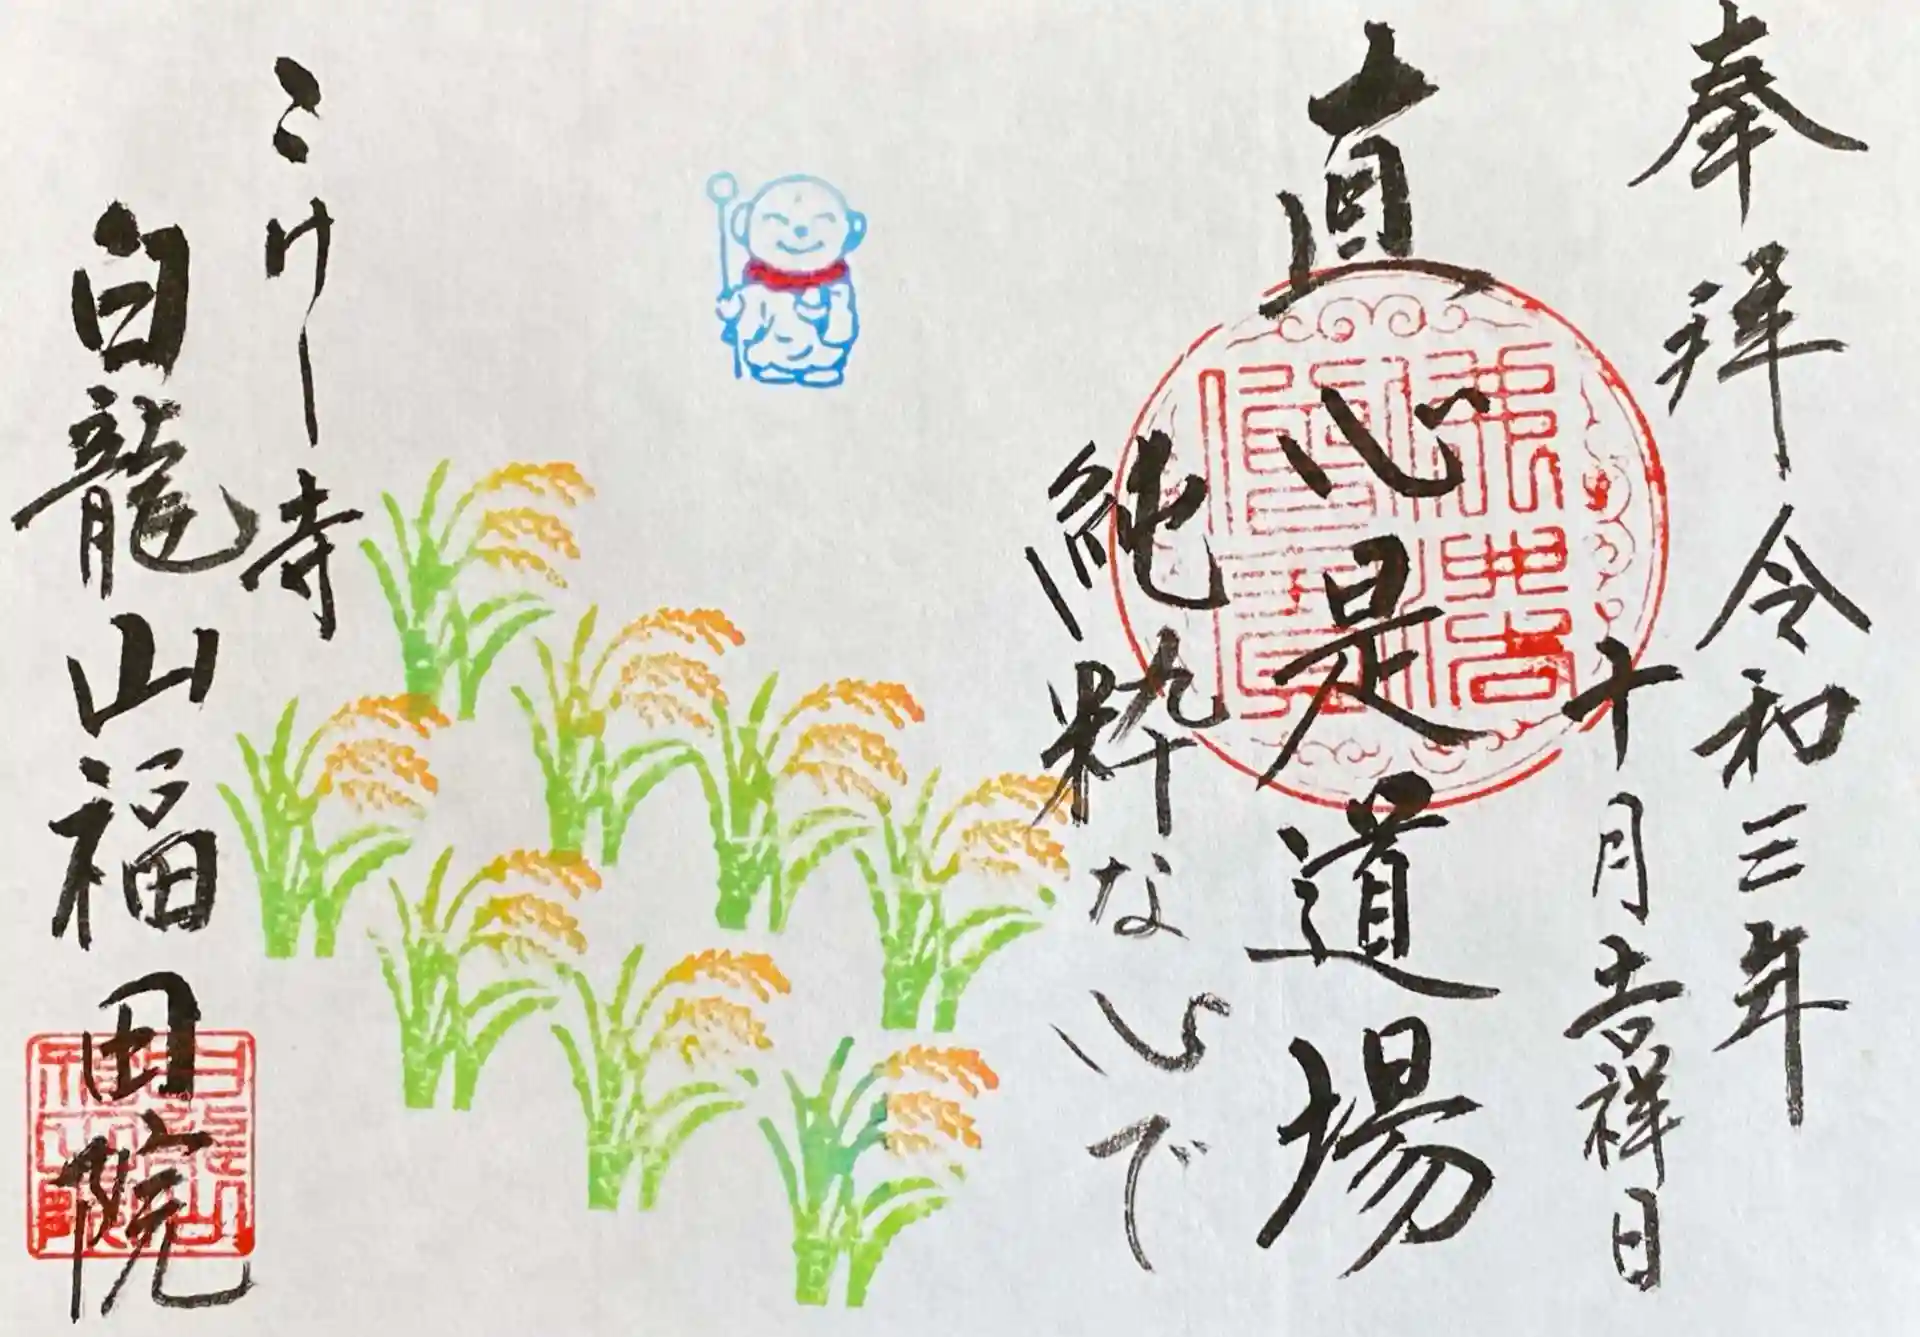 奉拝 令和三年
十月吉祥日
直心是道場
純粋な心で
こけし寺
白龍山福田院